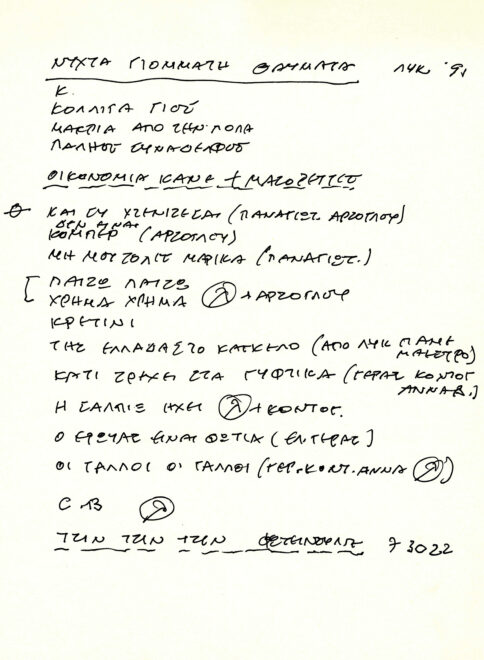 ΝΥΧΤΑ ΓΙΟΜΜΑΤΗ ΘΑΥΜΑΤΑ ΛΥΚ '91
Κ.
ΚΟΛΛΙΓΑ ΓΙΟΣ
ΜΑΚΡΙΑ ΑΠΟ ΤΗΝ ΠΟΛΑ
ΠΑΛΗΟΣ ΣΥΝΑΘΕΛΦΟΣ
ΟΙΚΟΝΟΜΙΑ ΚΑΝΕ + ΜΑΖΟΡΕΤΤΕΣ
ΚΑΙ ΣΥ ΧΤΕΝΙΖΕΣΑΙ (ΠΑΝΑΓΙΩΤ. ΑΡΖΟΓΛΟΥ)
ΔΕΝ ΑΝΑΙ
ΚΟΜΠΕΡ (ΑΡΖΟΓΛΟΥ)
ΜΗ ΜΟΥ ΖΟΛΙΣ ΜΑΡΙΚΑ (ΠΑΝΑΓΙΩΤ.)
ΠΑΙΖΩ ΠΑΙΖΩ
ΧΡΗΜΑ ΧΡΗΜΑ + ΑΡΖΟΓΛΟΥ
ΚΡΕΤΙΝΙ
ΤΗΣ ΕΛΛΑΔΑΣ ΤΟ ΚΑΓΚΕΛΟ (ΑΠΟ ΛΥΚ ΠΑΜΕ
ΜΑΕΣΤΡΟ)
ΚΑΤΙ ΤΡΕΧΕΙ ΣΤΑ ΓΥΦΤΙΚΑ (ΓΕΡΑΣ ΚΟΝΤΟΓ
ΑΝΝΑ Β.)
Η ΣΑΛΠΙΞ ΗΧΕΙ + ΚΟΝΤΟΓ.
Ο ΕΡΩΤΑΣ ΕΙΝΑΙ ΦΩΤΙΑ (ΕΛ. ΓΕΡΑΣ)
ΟΙ ΓΑΛΛΟΙ ΟΙ ΓΑΛΛΟΙ (ΓΕΡ. ΚΟΝΤ. ΑΝΝΑ)
C 13
ΤΗΝ ΤΗΝ ΤΗΝ 73022